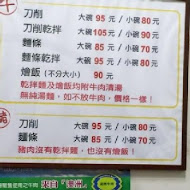 牛
刀削 大碗 95 元 / 小碗 80 元
刀削乾拌 大碗105元 / 小碗 90 元
麵條 大碗 85 元 / 小碗 70 元
麵條乾拌 大碗 95 元 / 小碗 80 元
燴飯 (不分大小) 90 元
乾拌麵及燴飯均附牛肉清湯
無純湯麵，如不放牛肉，價格一樣！
豬
刀削 大碗 95 元 / 小碗 80 元
麵條 大碗 85 元 / 小碗 70 元
豬肉沒有乾拌麵，也沒有燴飯！